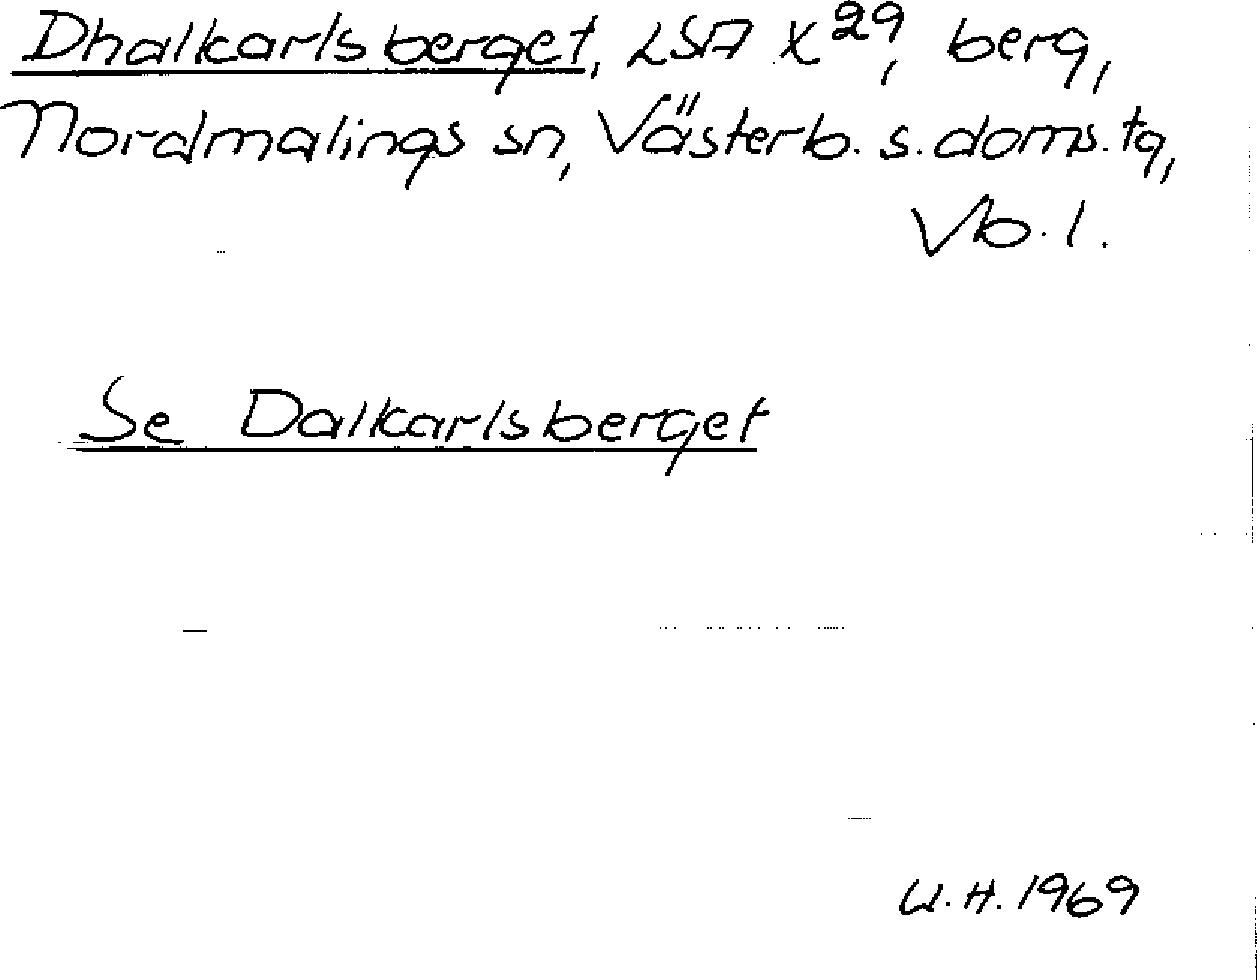 Dhalkarlsberget, LSA X 29, berg,
Nordmalings sn, Västerb. s. doms. tg,
Vb. l.
Se Dalkarlsberget
U.H. 1969